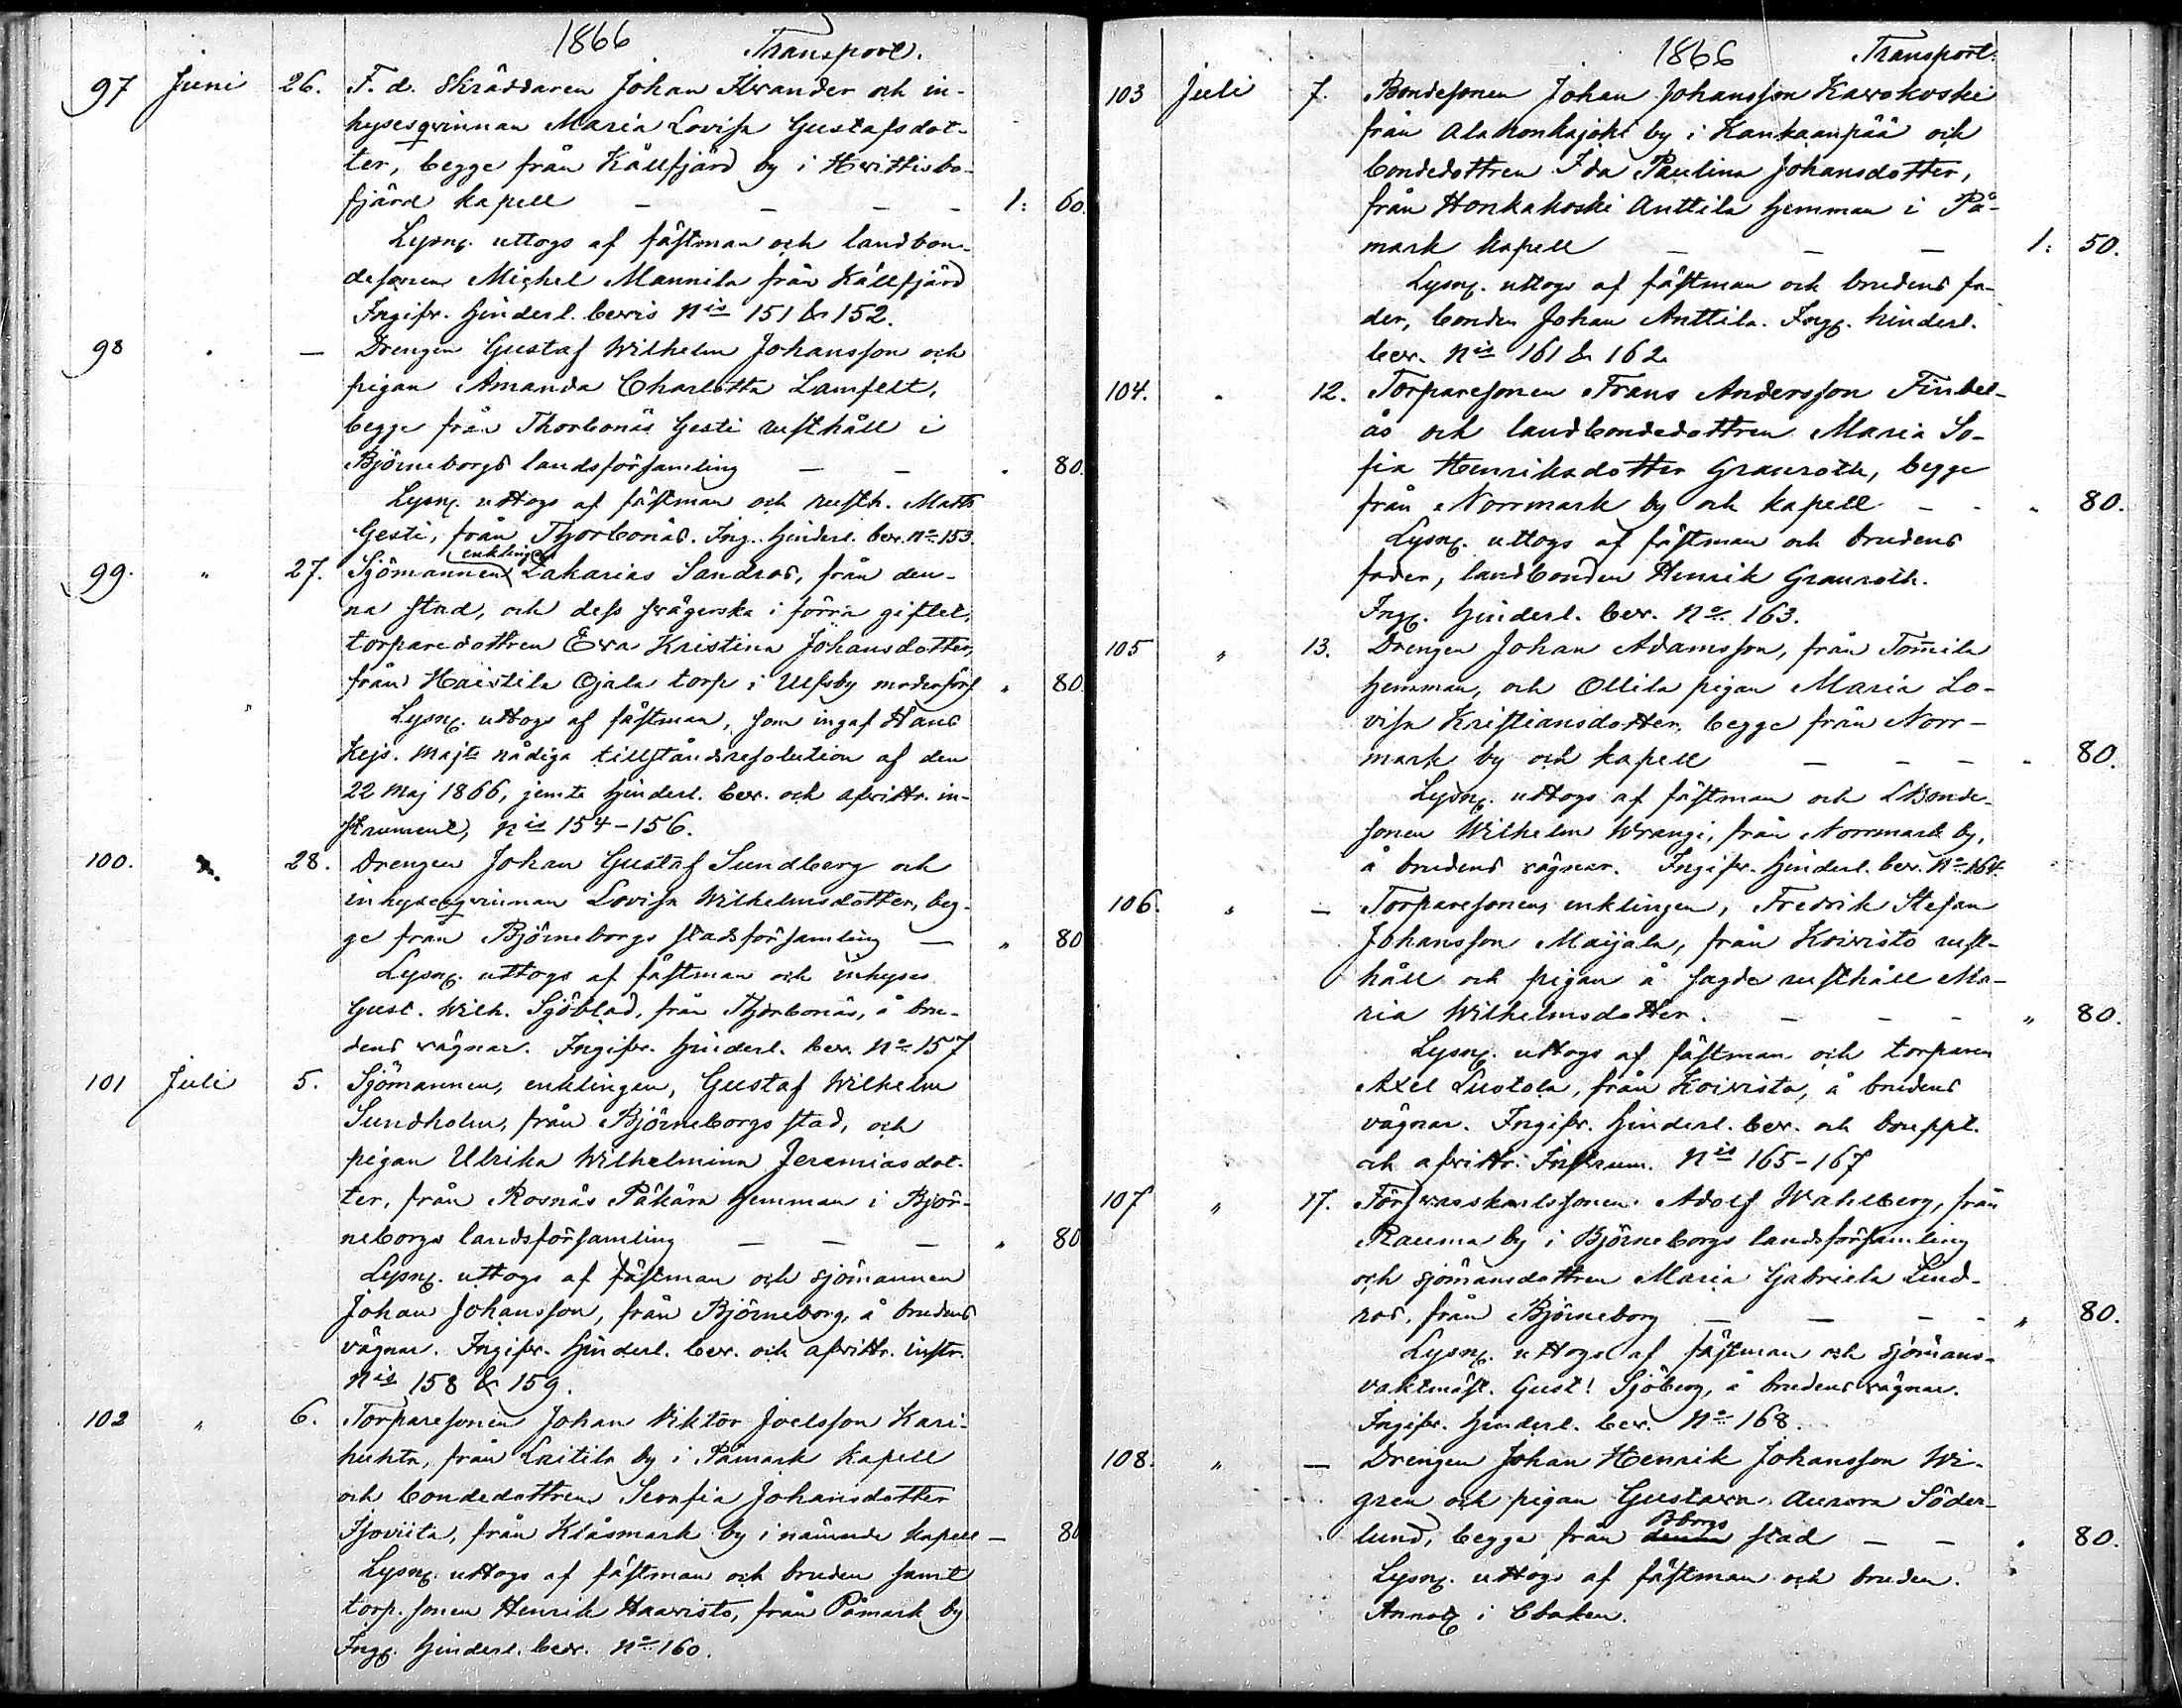 1866 Transport.
97 Juni 26. F. d. Skräddaren Johan Strander och in-
hysesqvinnan Maria Lovisa Gustafsdot-
ter, begge från Kållfjärd by i Hvittisbo-
fjärd kapell — — — 1: 60.
Lysng. uttogs af fästman och landbon-
desonen Michel Mannila från Kållfjärd
Ingifv. hinderl. bevis Nis 151 & 152.
98 " — Drengen Gustaf Wilhelm Johansson och
pigan Amanda Charlotta Lampelt,
begge från Thorbonäs Gesti rusthåll i
Björneborgs landsförsamling — — " 80.
Lysng. uttogs af fästman och rusth. Matts
Gesti, från Thorbonäs. Ing. hinderl. bev. No 153.
99. " 27. Sjömannen enklingen Zakarias Sandros, från den-
na stad, och dess svägerska i förra giftet,
torparedottren Eva Kristina Johansdotter,
från Haistila Ojala torp i Ulfsby moderförs. " 80.
Lysng. uttogs af fästman, som ingaf Hans
Kejs. Majts nådiga tillståndsresolution af den
22 Maj 1866, jemte hinderl. bev. och afvittr. in-
strument, Nis 154-156.
100. " 28. Drengen Johan Gustaf Sundberg och
inhysesqvinnan Lovisa Wilhelmsdotter, beg-
ge från Björneborgs stadsförsamling — " 80
Lysng. uttogs af fästman och inhyses
Gust. Wilh. Sjöblad, från Thorbonäs, å bru-
dens vägnar. Ingifv. hinderl. bev. No 157
101 Juli 5. Sjömannen, enklingen, Gustaf Wilhelm
Sundholm, från Björneborgs stad, och
pigan Ulrika Wilhelmina Jeremiasdot-
ter, från Rosnäs Päkärn hemman i Björ-
neborgs landsförsamling — — — " 80
Lysng. uttogs af fästman och sjömannen
Johan Johansson, från Björneborg, å brudens
vägnar. Ingifv. hinderl. bev. och afvittr. instr.
Nis 158 & 159.
102 " 6. Torparesonen Johan Viktor Joelsson Kari-
huhta, från Laitila by i Påmark kapell
och bondedottren Serafia Johansdotter
Isoviita, från Klåsmark by i nämnde kapell — 80
Lysng. uttogs af fästman och bruden samt
torp. sonen Henrik Haavisto, från Påmark by
Ingg. hinderl. bev. No 160.
1866 Transport.
103 Juli 7. Bondesonen Johan Johansson Karvakoski
från Alahonkajoki by i Kankaanpää och
bondedottren Ida Paulina Johansdotter,
från Honkakoski Anttila hemman i På-
mark kapell — — — 1: 50.
Lysng. uttogs af fästman och brudens fa-
der, bonden Johan Anttila. Ingg. hinderl.
bev. Nis 161 & 162.
104. " 12. Torparesonen Frans Andersson Finbel-
ås och landbondedottren Maria So-
fia Henriksdotter Granroth, begge
från Norrmark by och kapell — - " 80.
Lysng. uttogs af fästman och brudens
fader, landbonden Henrik Granroth.
Ingg. hinderl. bev. No 163.
105 " 13. Drengen Johan Adamsson, från Tom̄ila
hemman, och Ollila pigan Maria Lo-
visa Kristiansdotter, begge från Norr-
mark by och kapell — — — " 80.
Lysng. uttogs af fästman och Lbonde-
sonen Wilhelm Wrangi, från Norrmark by,
å brudens vägnar. Ingifv. hinderl. bev. No 164.
106. " — Torparesonen, enklingen, Fredrik Stefan
Johansson Maijala, från Koivisto rust-
håll och pigan å sagde rusthåll Ma-
ria Wilhelmsdotter. — — — " 80.
Lysng. uttogs af fästman och torparen
Axel Lustola, från Koivisto, å brudens
vägnar. Ingifv. hinderl. bev. och bouppt.
och afvittr. Instrum. Nis 165-167
107 " 17. Försvarskarlssonen Adolf Wahlberg, från
Rauma by i Björneborgs landsförsamling
och sjömansdottren Maria Gabriela Lind-
ros, från Björneborg — — — " 80.
Lysng. uttogs af fästman och sjömans-
vaktmäst. Gust! Sjöberg, å brudens vägnar.
Ingifv. hinderl. bev. No 168.
108. " — Drengen Johan Henrik Johansson Wi-
gren och pigan Gustava Aurora Söder-
lund, begge från denna Bborgs stad — — " 80.
Lysng. uttogs af fästman och bruden.
Annot. i Cboken.